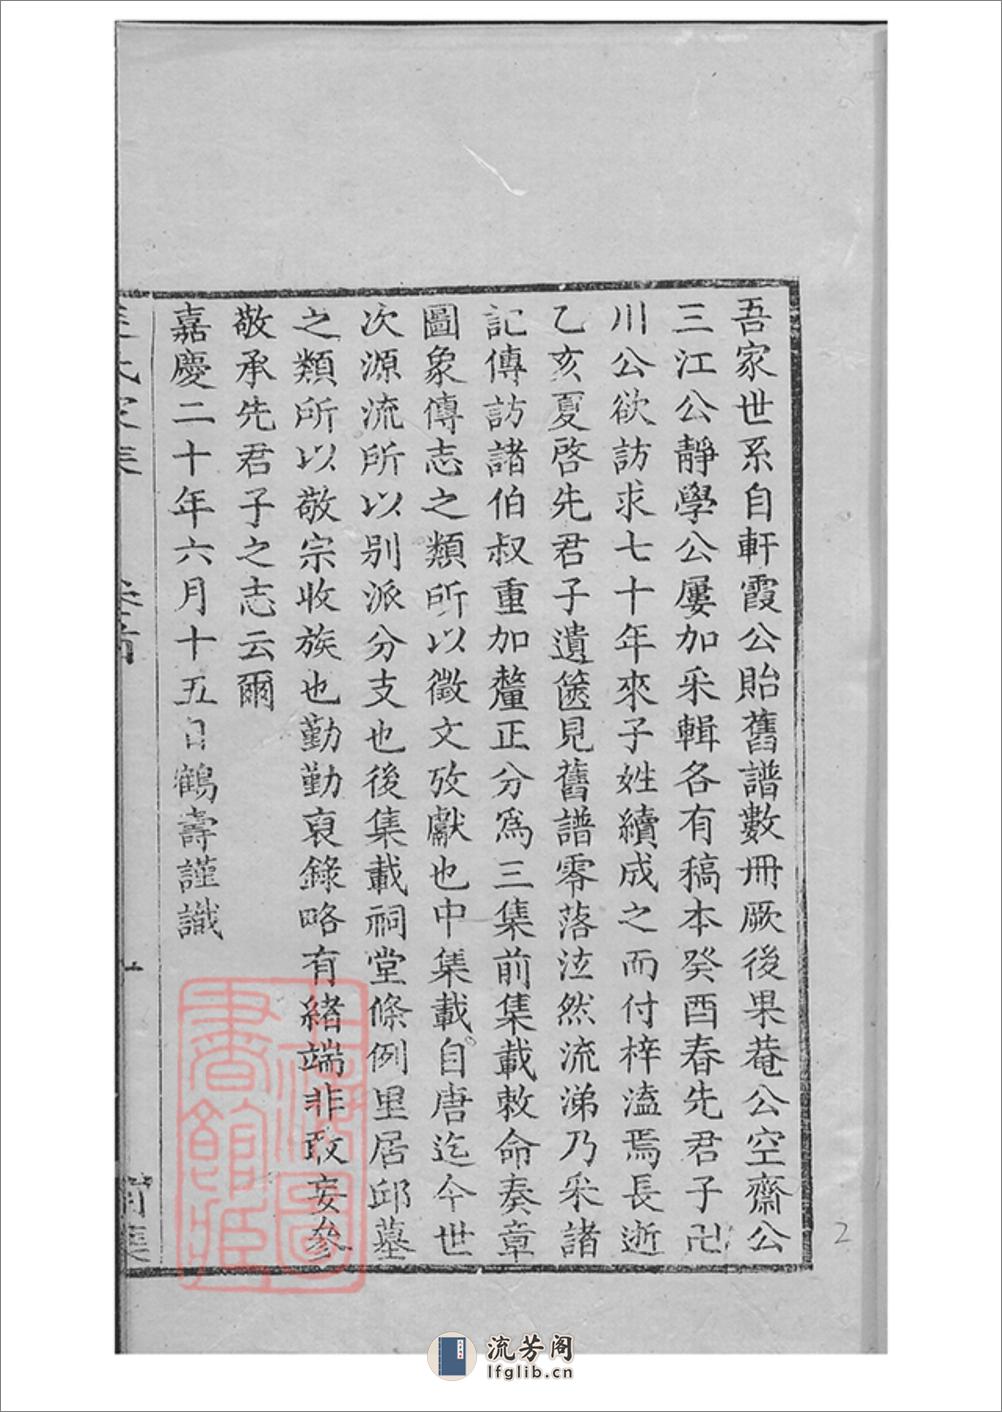 吾家世系自軒霞公貽舊譜數冊厥後果菴公空齋公
三江公靜學公屢加采輯各有稿本癸酉春先君子卍
川公欲訪求七十年來子姓續成之而付梓溘焉長逝
乙亥夏啓先君子遺篋見舊譜零落泣然流涕乃采諸
記傳訪諸伯叔重加釐正分爲三集前集載敕命奏章
圖象傳志之類所以徵文攷獻也中集載自唐迄今世
次源流所以別派分支也後集載祠堂條例里居邱墓
之類所以敬宗收族也勤勤裒錄略有緒端非敢妄參
敬承先君子之志云爾
嘉慶二十年六月十五日鶴壽謹識
上海圖
書館藏
2
流芳阁
lfglib.cn